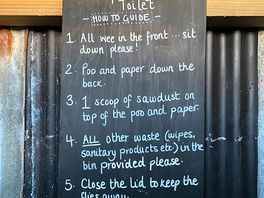 Toilet
- HOW TO GUIDE -
1. All wee in the front ... sit
down please!
2. Poo and paper down the
back.
3. 1 scoop of sawdust on
top of the poo and paper.
4. ALL other waste (wipes,
sanitary products etc.) in the
bin provided please.
5. Close the Lid to keep the
flies away.